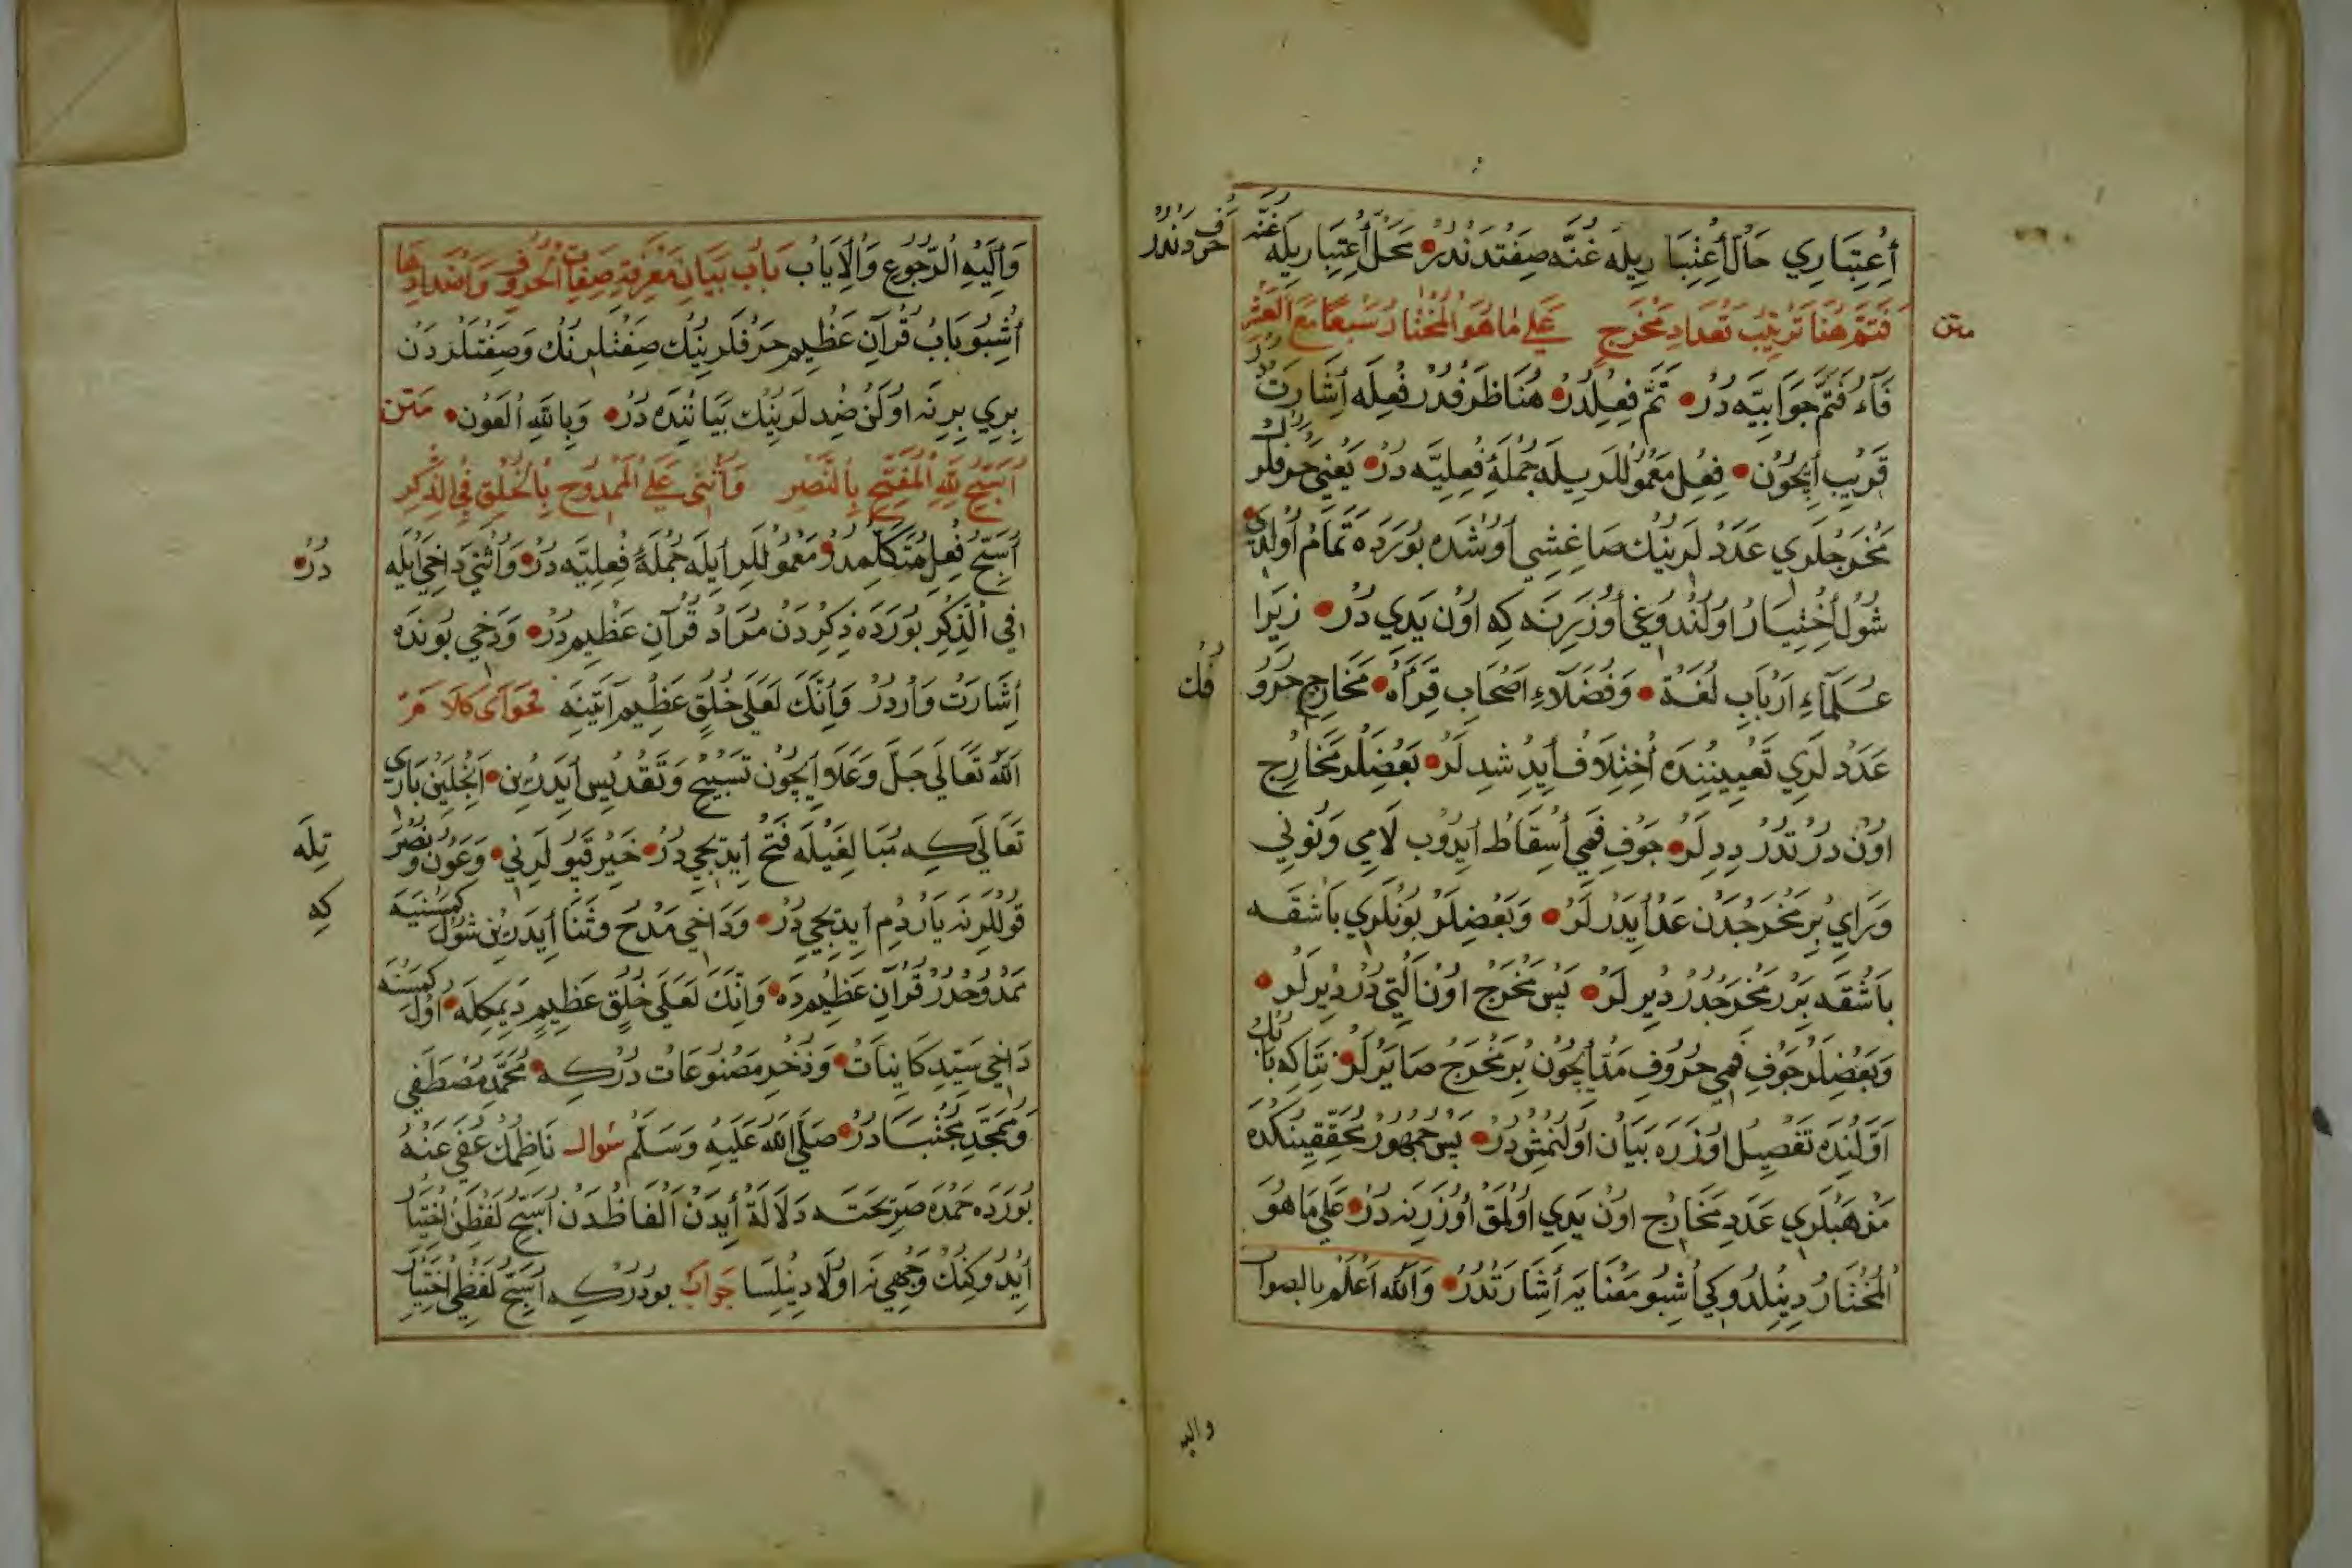 أعتباري حال أعتباريله غنّه صفتدندر محل أعتباريله غنّه حروفدندر
متن
فتم هنا ترتيب تعداد مخرج على ما هو المختار سبعا مع العشر
فآء فتم جوابيّه در تمّ فعلدر هنا ظرفدر فعله إشارتدر
قريب أيچون فعل معموللريله جملۀ فعليّه در يعني حرفلرك
مخرجلري عددلرينك صاغشي أوشده بورده تمام أولدي
شول أختيار اولندوغي أوزرينه كه اون يدي در زيرا
علمآء ارباب لغة وفضلآء اصحاب قرأه مخارج حروفك
عددلري تعييننده أختلاف أيدشدلر بعضلر مخارج
اون درتدر ديدلر جوف فمي أسقاط أيدوب لامي ونوني
وراي بر مخرجدن عد أيدرلر وبعضلر بونلري باشقه
باشقه برر مخرجدر ديرلر پس مخرج اون ألتي در ديرلر
وبعضلر جوف فمي حروف مدّ أيچون بر مخرج صايرلر نتاكه بابك
اوّلنده تفصيل اوزره بيان اولنمش در پس جمهور محققينكده
مذهبلري عدد مخارج اون يدي اولمق أوزرينه در على ما هو
المختار دينلدوكي أشبو معنايه أشارتدر والله اعلم بالصواب
واليه
وأليه الرجوع والإياب باب بيان معرفة صفات الحروف وأضدادها
أشبو باب قرآن عظيم حرفلرينك صفتلرنك وصفتلردن
بري برنه اولن ضدلرينك بياننده در وبالله العون متن
أسبّح لله المفتّح بالنصر وأثنى على الممدوح بالخلق في الذكر
أسبّح فعل متكلمدر معموللر أيله جملۀ فعليّه در وأثني داخي أيله در
في ألذكر بورده ذكردن مراد قرآن عظيمدر ودخي بونده
أشارت واردر وأنّك لعلى خلق عظيم آيتينه فحواى كلام
الله تعالى جلّ وعلا أيچون تسبيح وتقديس أيدرين انجلين باري
تعالى كه مبالغيله فتح أيديجي در خير قپولرني وعون ونصرتيله
قوللرنه ياردم أيديجي در وداخي مدح وثنا أيدرين شول كمسنيه كه
ممدوحدر قرآن عظيمده وانّك لعلى خلق عظيم ديمكله اول كمسنه
داخي سيّد كاينات وذخر مصنوعات دركه محمّد مصطفى
وممجّد مجتبادر صلى الله عليه وسلم سوال ناظمك عفى عنه
بورده حمده صريحته دلالة أيدن ألفاظدن أسبّح لفظن اختيار
أيدوكنك وجهي نه اولا دينلسا جواب بودركه أسبّح لفظي اختيار